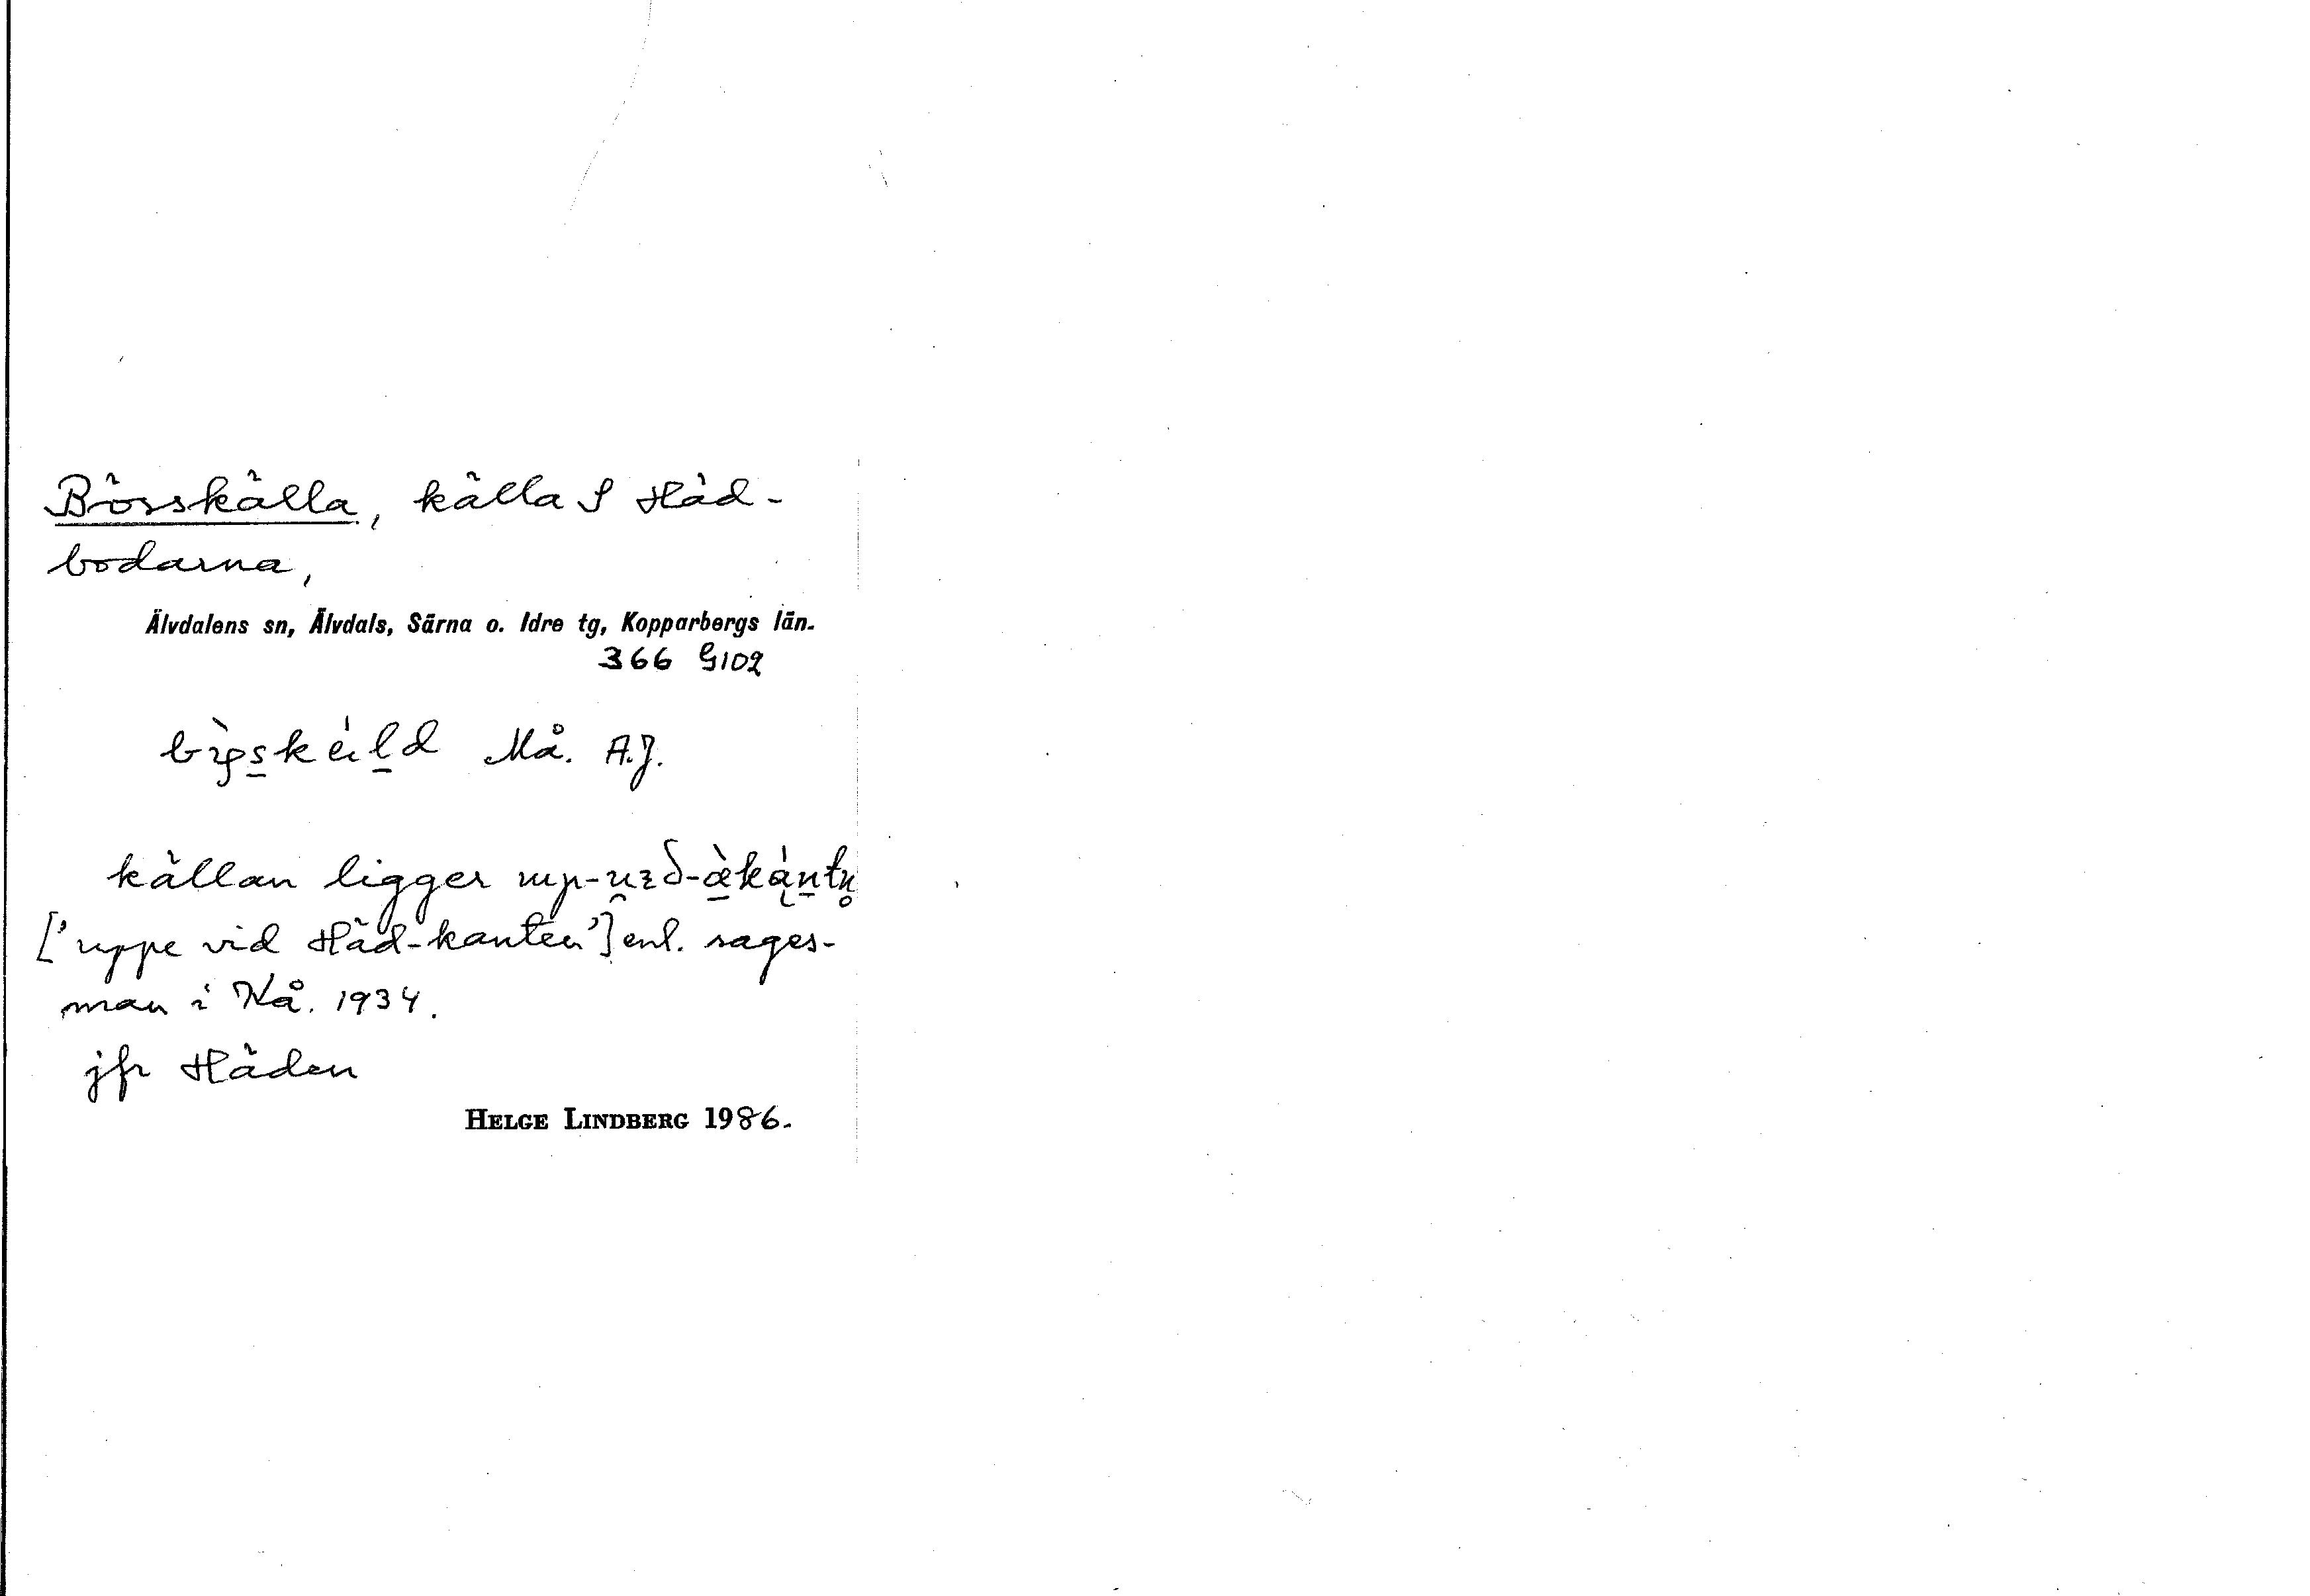 Börskälla, källa S Häd-
bodarna,
Älvdalens sn, Älvdals, Särna o. Idre tg, Kopparbergs län.
366 G102
Må. A.J.
källan ligger
['uppe vid Häd-kanten'] enl. sages-
man i Kå. 1934.
jfr Häden
HELGE LINDBERG 1986.